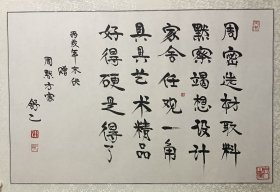 周密选材取料
默察竭想设计
家舍任观一角
具具艺术精品
好得硬是得了
丙戌年末伏
赠
周默方家
舒乙